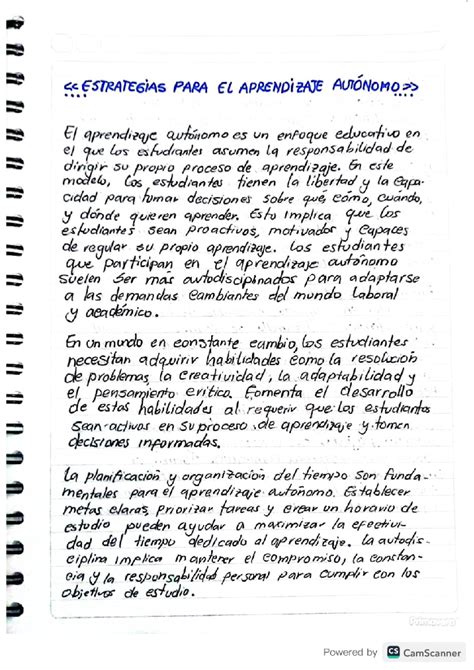 <<ESTRATEGIAS PARA EL APRENDIZAJE AUTÓNOMO>>
El aprendizaje autónomo es un enfoque educativo en
el que los estudiantes asumen la responsabilidad de
dirigir su propio proceso de aprendizaje. En este
modelo, los estudiantes tienen la libertad y la capa-
cidad para tomar decisiones sobre qué, cómo, cuándo,
y dónde quieren aprender. Esto implica que los
estudiantes sean proactivos, motivados y capaces
de regular su propio aprendizaje. Los estudiantes
que participan en el aprendizaje autónomo
suelen ser más autodisciplinados para adaptarse
a las demandas cambiantes del mundo laboral
y académico.
En un mundo en constante cambio, los estudiantes
necesitan adquirir habilidades como la resolución
de problemas, la creatividad, la adaptabilidad y
el pensamiento crítico. Fomenta el desarrollo
de estas habilidades al requerir que los estudiantes
sean activos en su proceso de aprendizaje y tomen
decisiones informadas.
La planificación y organización del tiempo son funda-
mentales para el aprendizaje autónomo. Establecer
metas claras, priorizar tareas y crear un horario de
estudio pueden ayudar a maximizar la efectivi-
dad del tiempo dedicado al aprendizaje. La autodis-
ciplina implica mantener el compromiso, la constan-
cia y la responsabilidad personal para cumplir con los
objetivos de estudio.
Powered by CS CamScanner